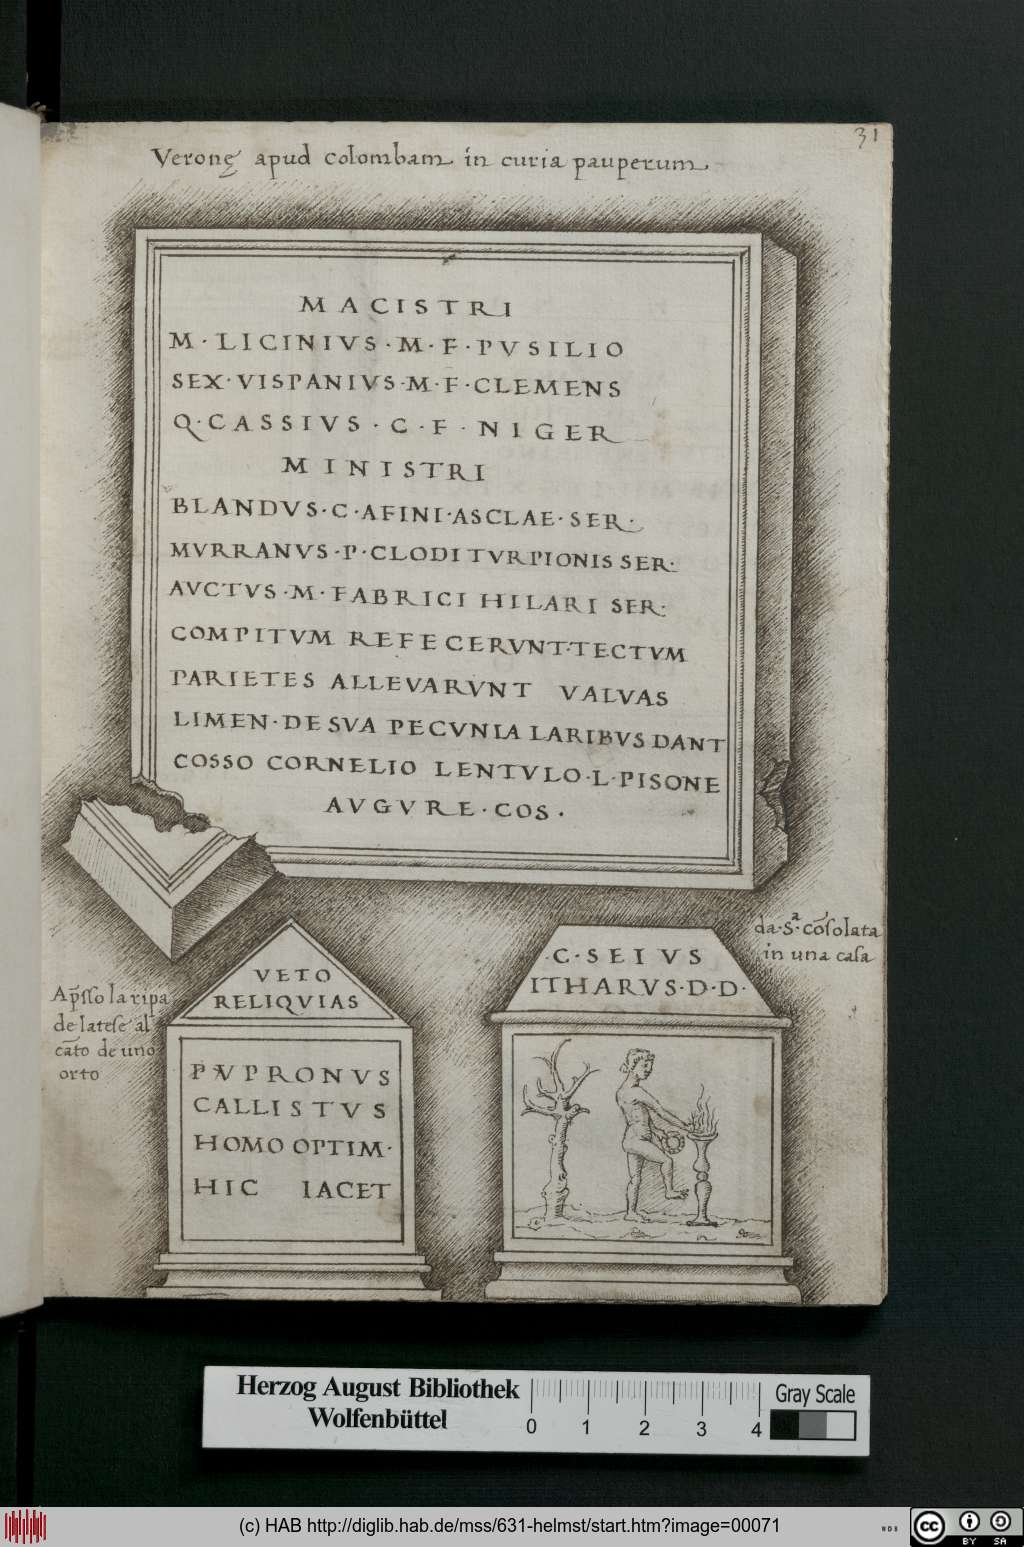 31
Veronę apud colombam in curia pauperum
MACISTRI
M·LICINIVS·M·F·PVSILIO
SEX·VISPANIVS·M·F·CLEMENS
Q·CASSIVS·C·F·NIGER
MINISTRI
BLANDVS·C·AFINI·ASCLAE·SER·
MVRRANVS·P·CLODI TVRPIONIS SER·
AVCTVS·M·FABRICI HILARI SER:
COMPITVM REFECERVNT·TECTVM
PARIETES ALLEVARVNT VALVAS
LIMEN·DE SVA PECVNIA LARIBVS DANT
COSSO CORNELIO LENTVLO·L·PISONE
AVGVRE·COS·
VETO
RELIQVIAS
P·VPRONVS
CALLISTVS
HOMO OPTIM·
HIC IACET
Ap̄sso la ripa
de latese al
cāto de uno
orto
da·Sª·cōsolata
in una casa
·C·SEIVS
ITHARVS·D·D·
Herzog August Bibliothek
Wolfenbüttel
0 1 2 3 4
Gray Scale
(c) HAB http://diglib.hab.de/mss/631-helmst/start.htm?image=00071
WDB
cc BY SA